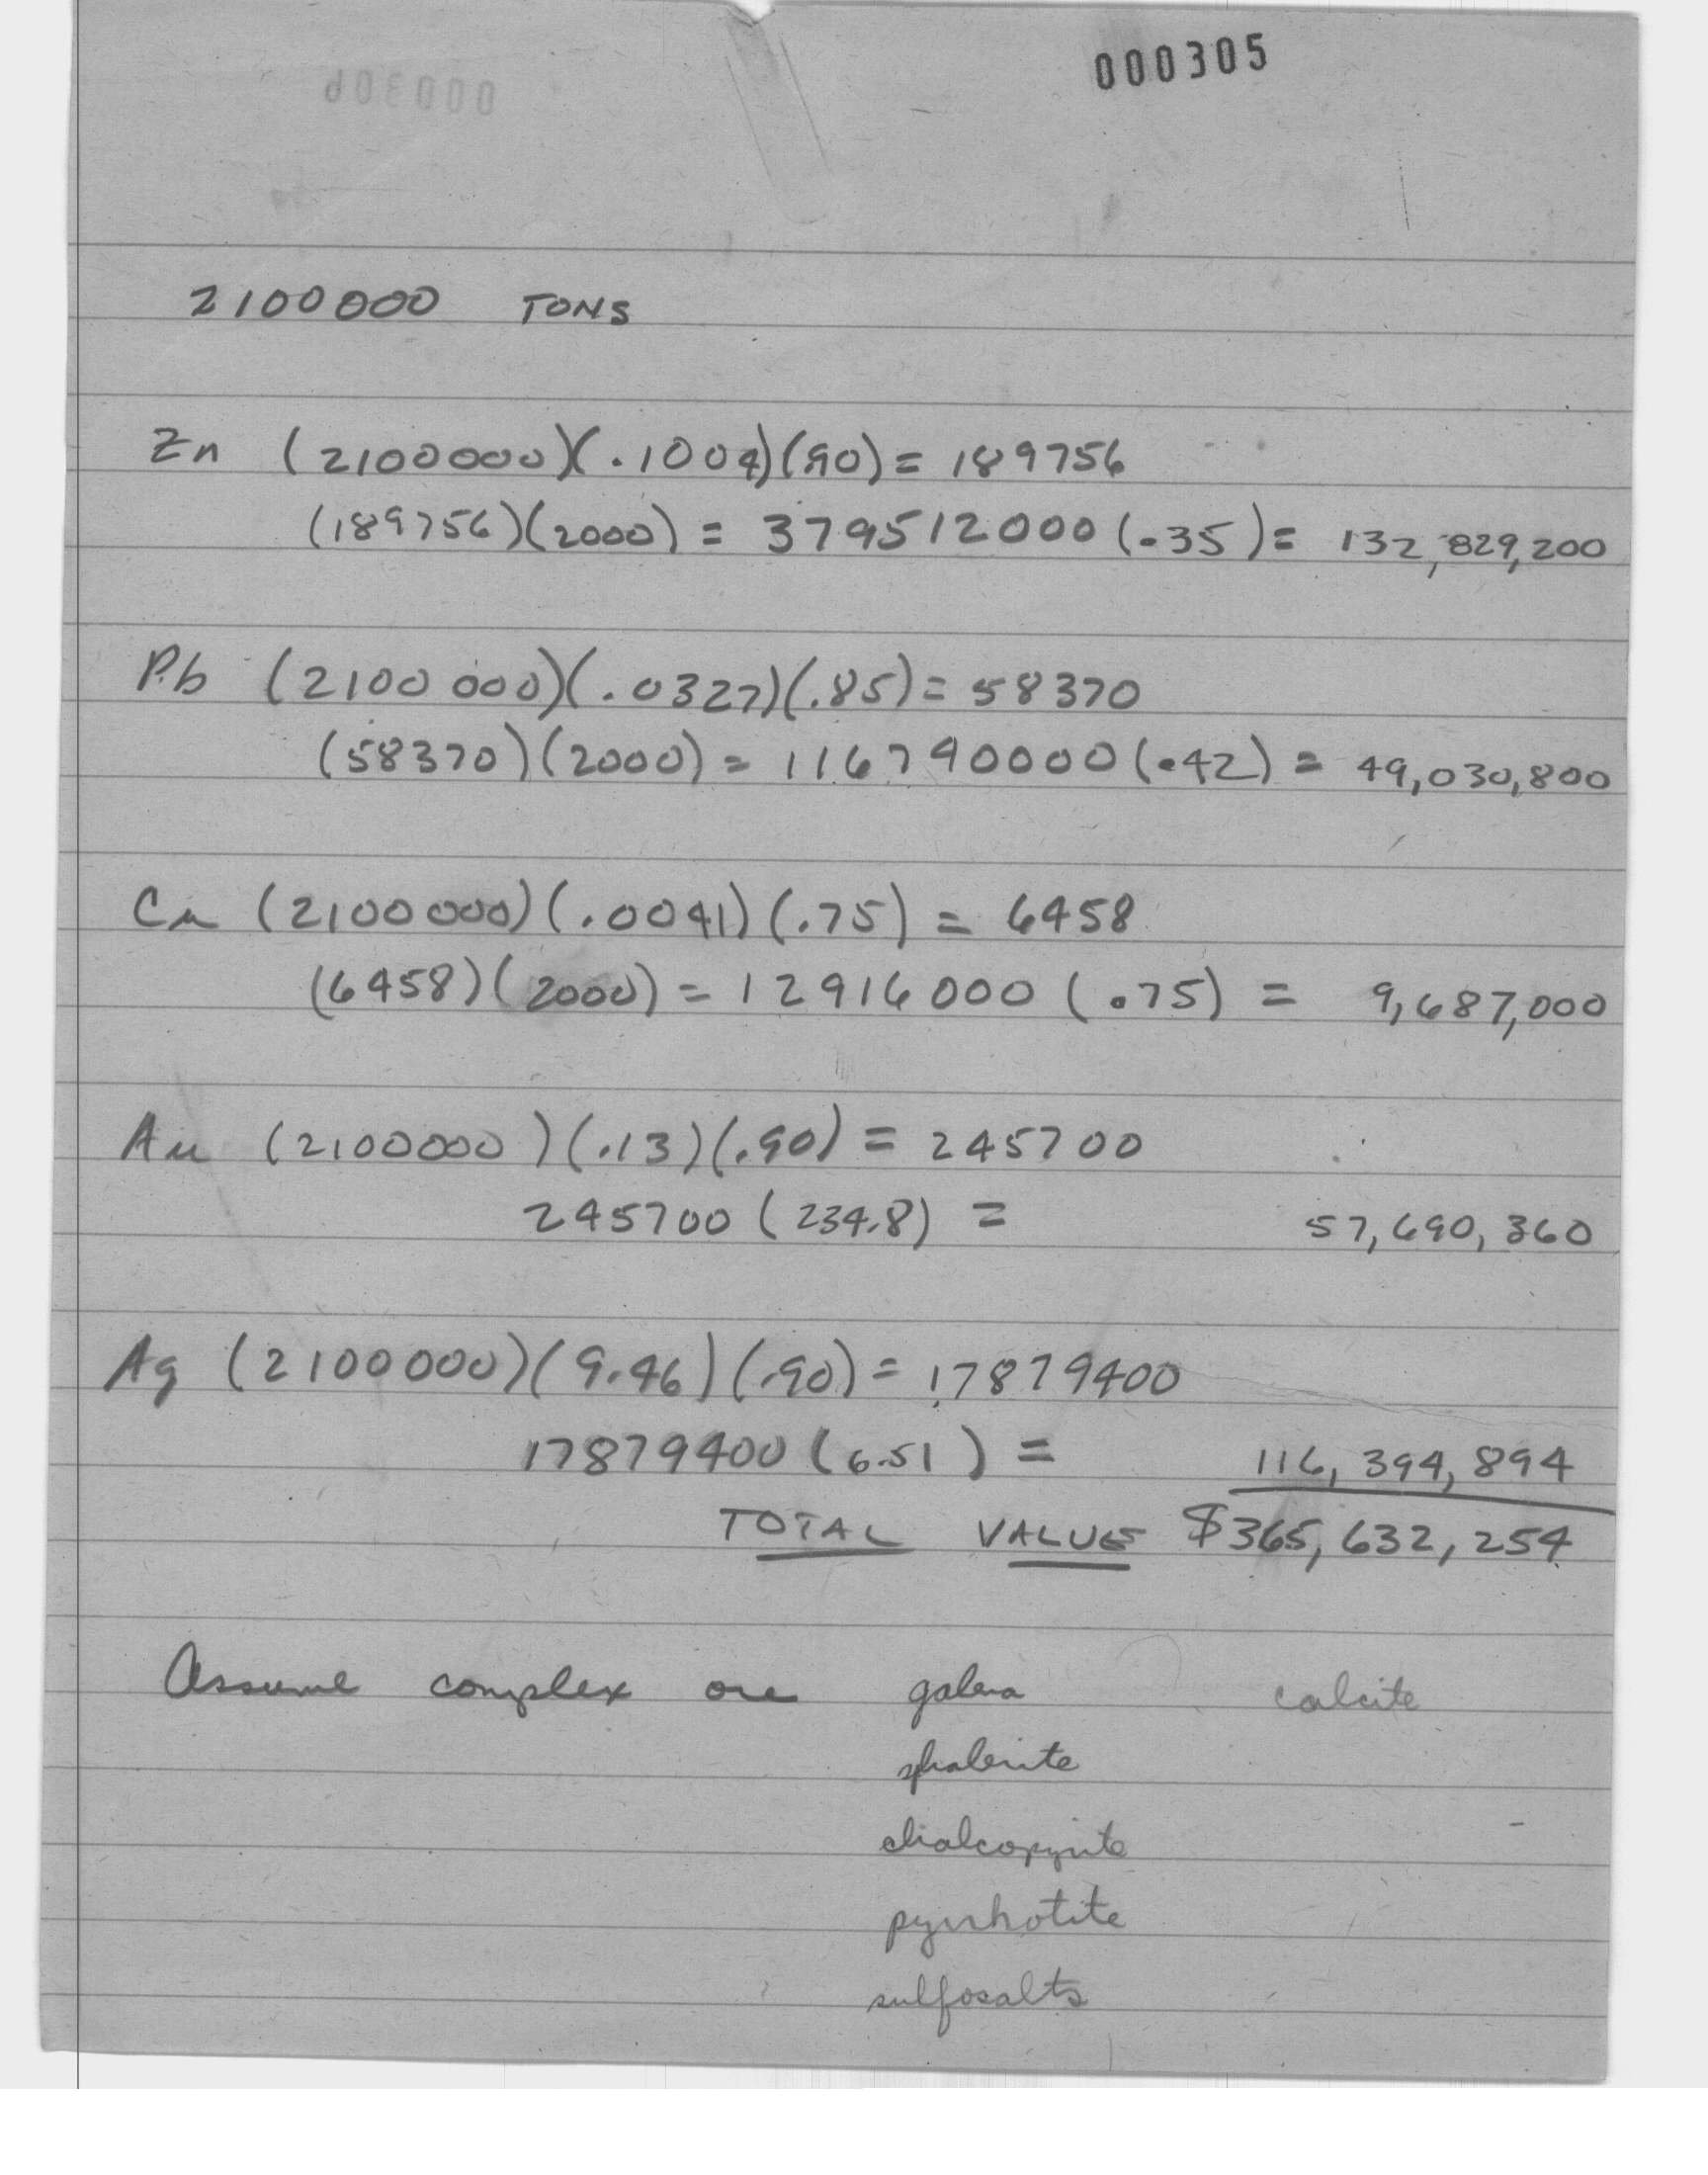 000305
2100000 TONS
Zn (2100000)(.1004)(.90) = 189756
(189756)(2000) = 379512000 (.35) = 132,829,200
Pb (2100 000)(.0327)(.85) = 58370
(58370)(2000) = 116740000 (.42) = 49,030,800
Cu (2100000)(.0041)(.75) = 6458
(6458)(2000) = 12916000 (.75) = 9,687,000
Au (2100000)(.13)(.90) = 245700
245700 (234.8) = 57,690,360
Ag (2100000)(9.46)(.90) = 17879400
17879400 (6.51) = 116,394,894
TOTAL VALUE $365,632,254
Assume complex ore galena calcite
sphalerite
chalcopyrite
pyrrhotite
sulfosalts